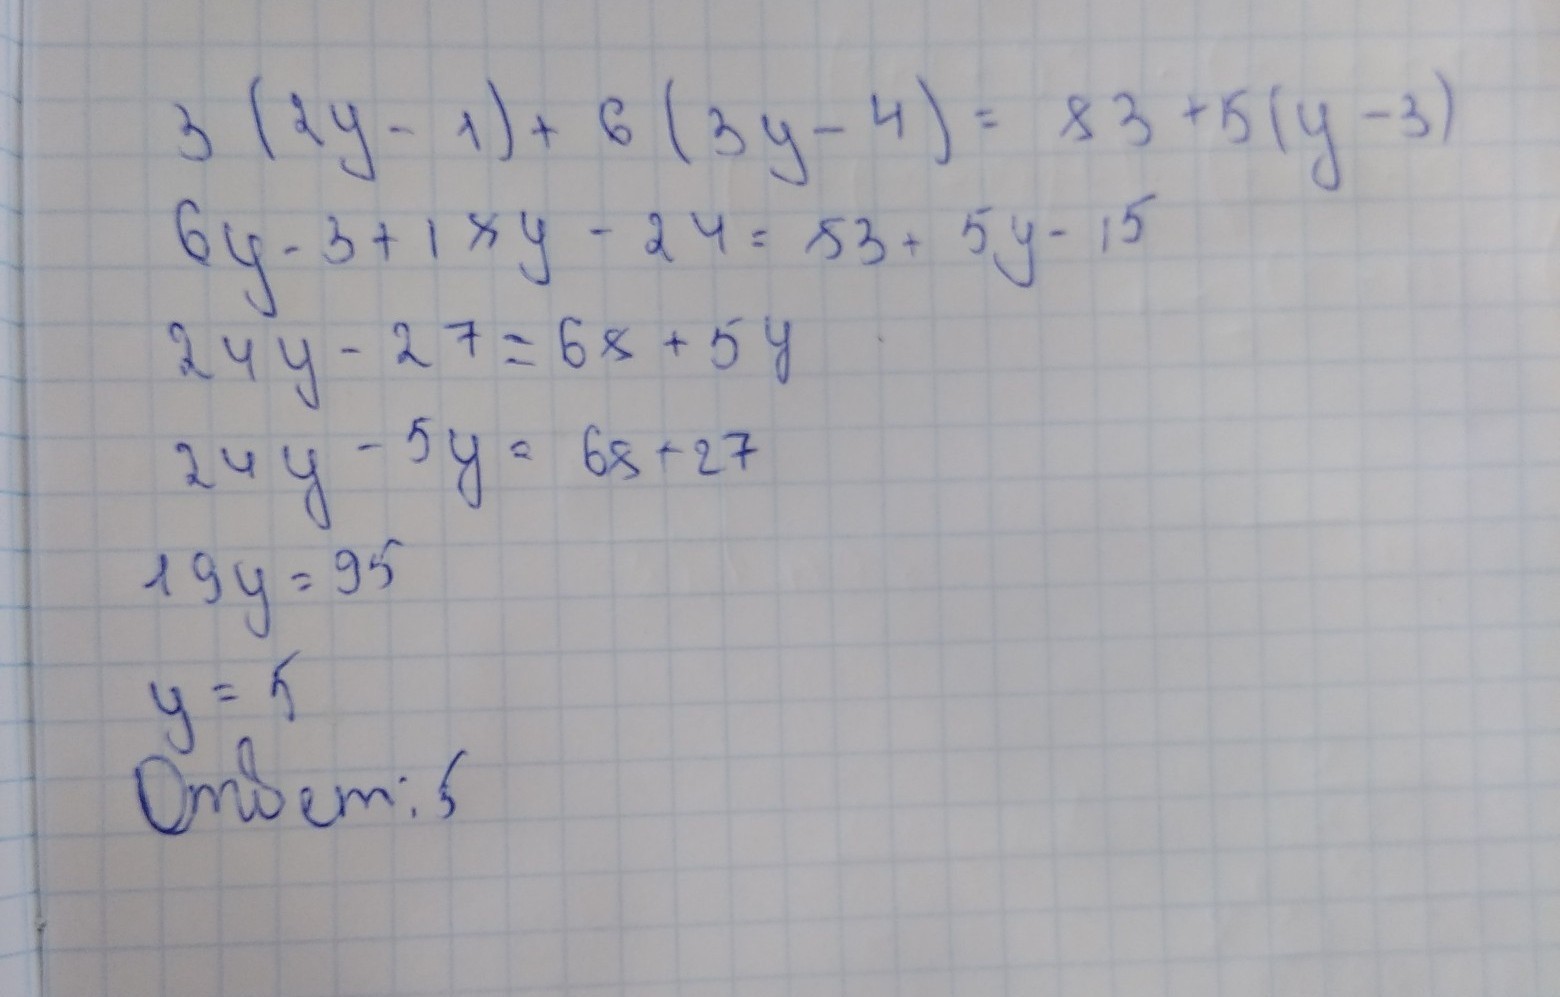 3(2y - 1) + 6(3y - 4) = 83 + 5(y - 3)
6y - 3 + 18y - 24 = 83 + 5y - 15
24y - 27 = 68 + 5y
24y - 5y = 68 + 27
19y = 95
y = 5
Ответ: 5